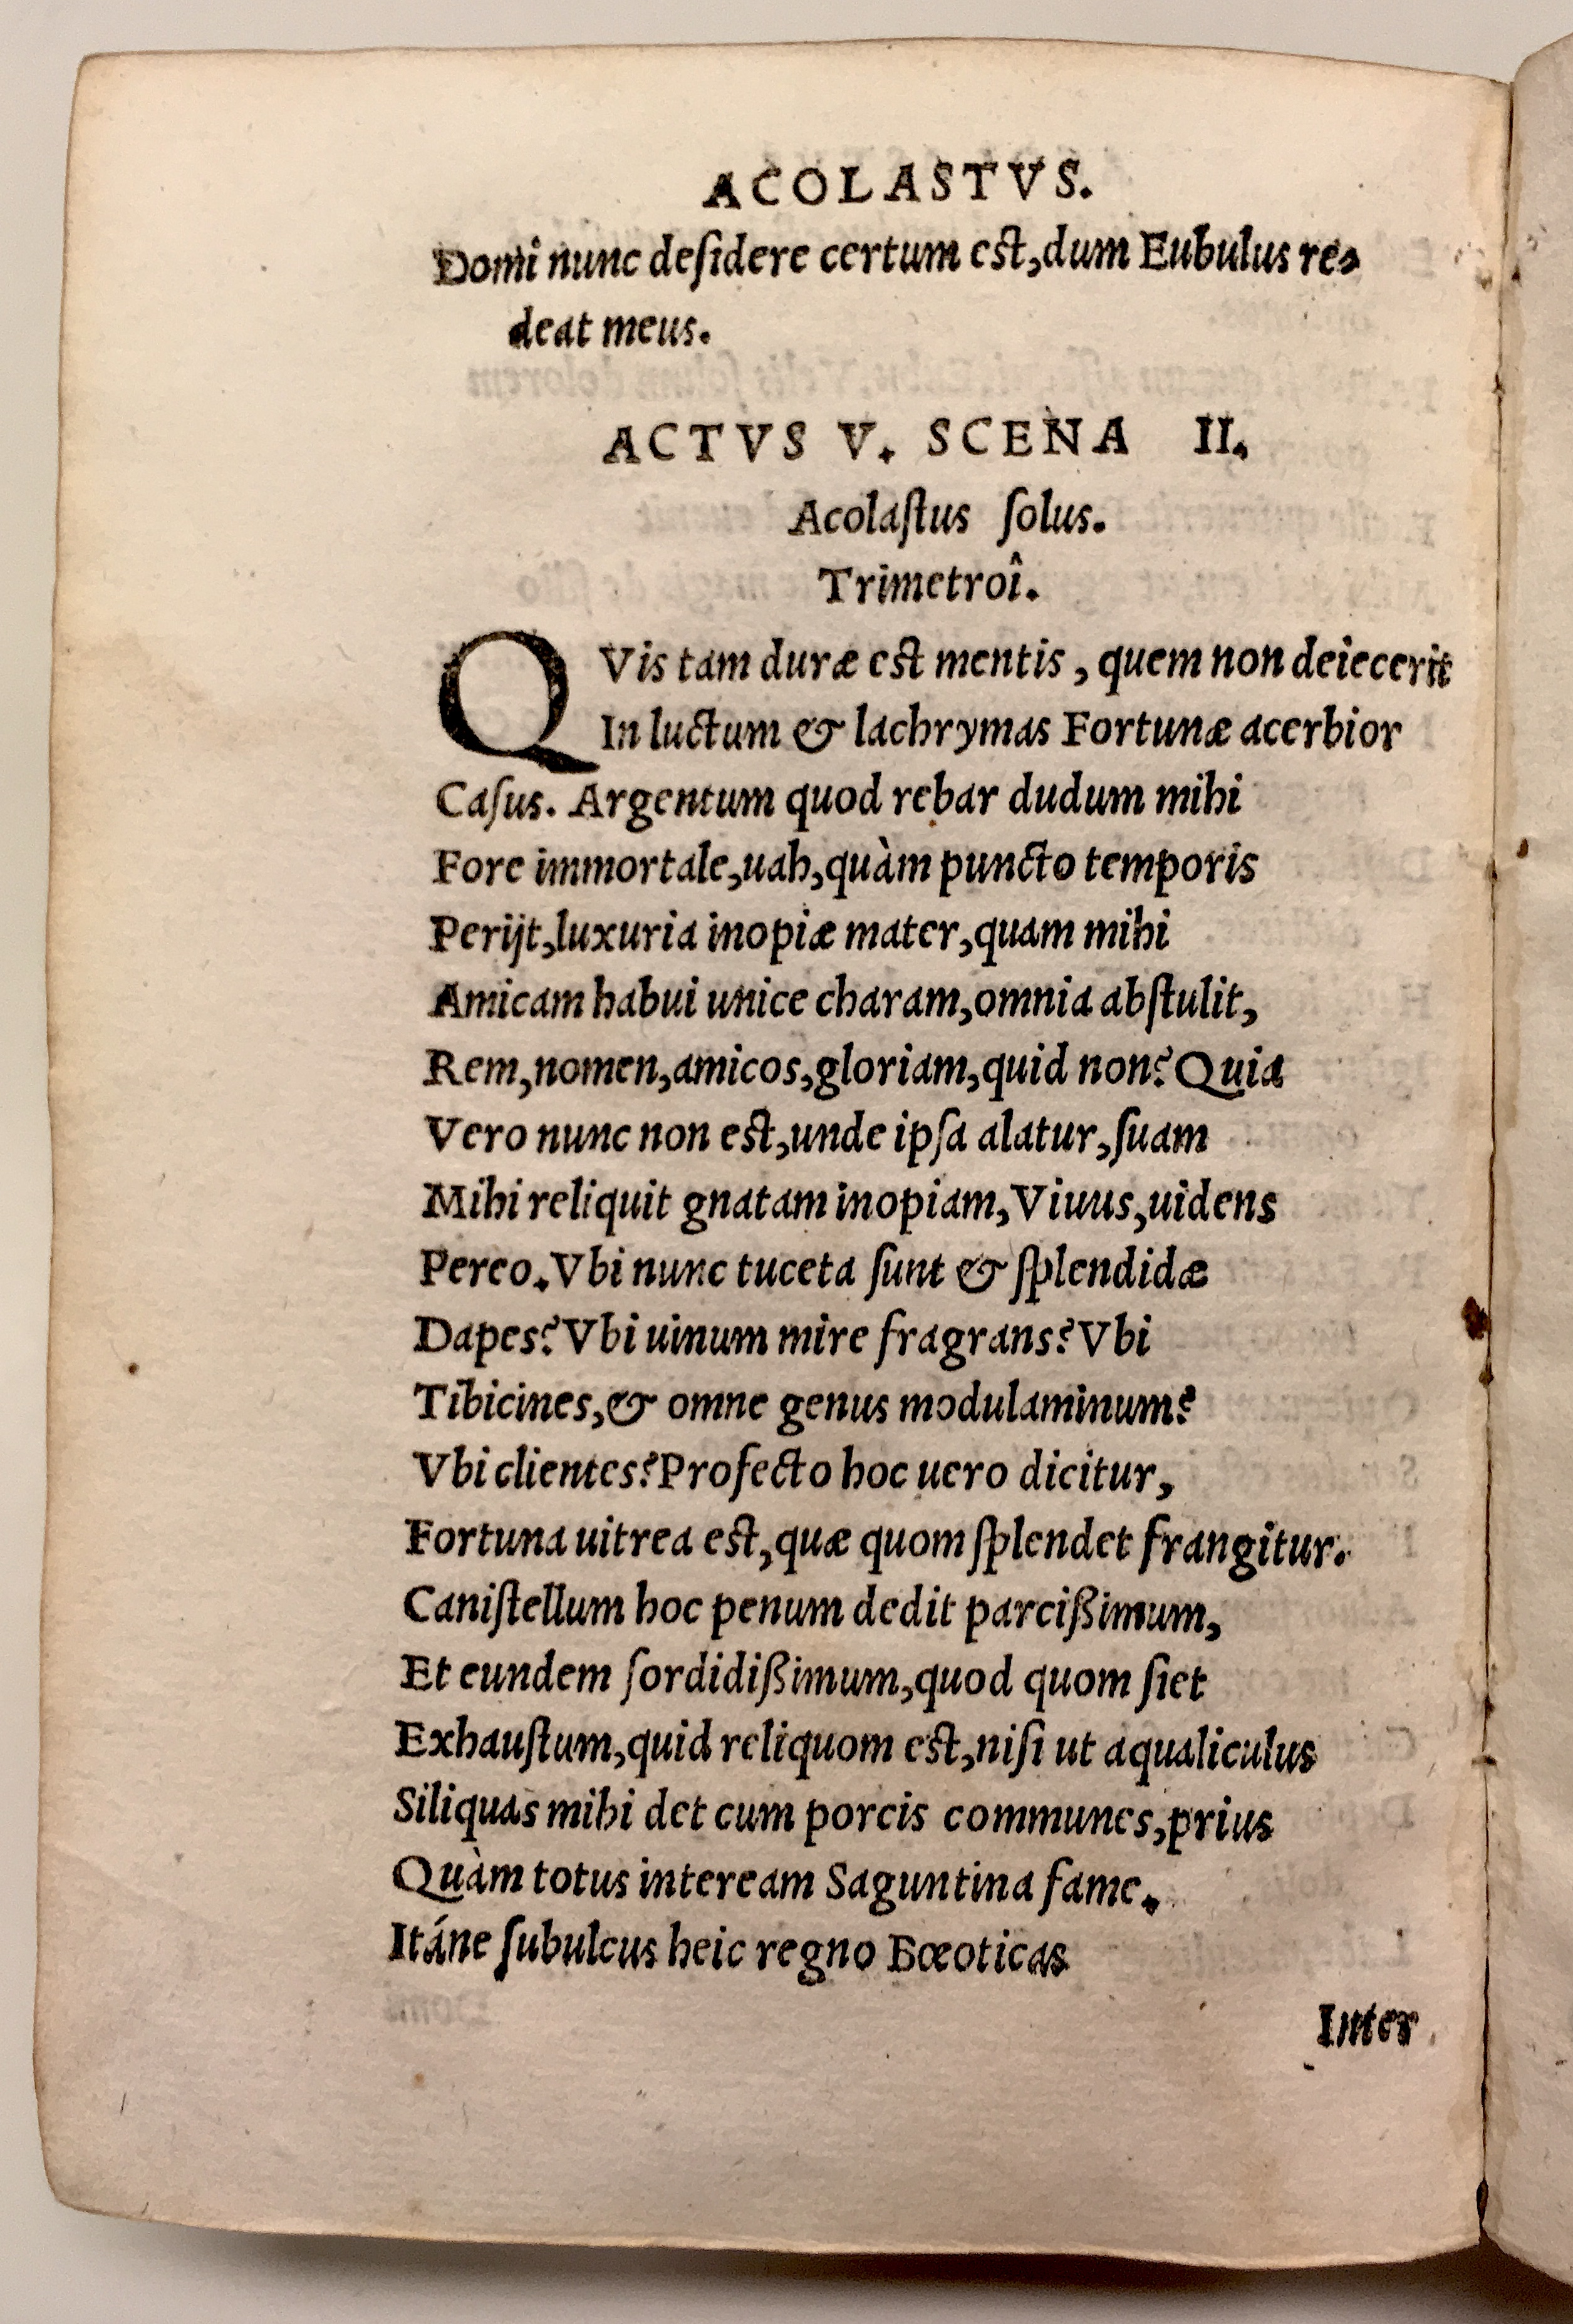 ACOLASTVS.
Domi nunc deſidere certum est,dum Eubulus re-
deat meus.
ACTVS V. SCENA II.
Acolaſtus ſolus.
Trimetroî.
QVis tam duræ est mentis, quem non deiecerit
In luctum & lachrymas Fortunæ acerbior
Caſus. Argentum quod rebar dudum mihi
Fore immortale,uah,quàm puncto temporis
Perijt,luxuria inopiæ mater,quam mihi
Amicam habui unice charam,omnia abſtulit,
Rem,nomen,amicos,gloriam,quid non? Quia
Vero nunc non est,unde ipſa alatur,ſuam
Mihi reliquit gnatam inopiam,Viuus,uidens
Pereo.Vbi nunc tuceta ſunt & ſplendidæ
Dapes?Vbi uinum mire fragrans?Vbi
Tibicines,& omne genus modulaminum?
Vbi clientes?Profecto hoc uero dicitur,
Fortuna uitrea est,quæ quom ſplendet frangitur.
Caniſtellum hoc penum dedit parcißimum,
Et eundem ſordidißimum,quod quom ſiet
Exhauſtum,quid reliquom est,niſi ut aqualiculus
Siliquas mihi det cum porcis communes,prius
Quàm totus inteream Saguntina fame.
Itáne ſubulcus heic regno Bœoticas
Inter